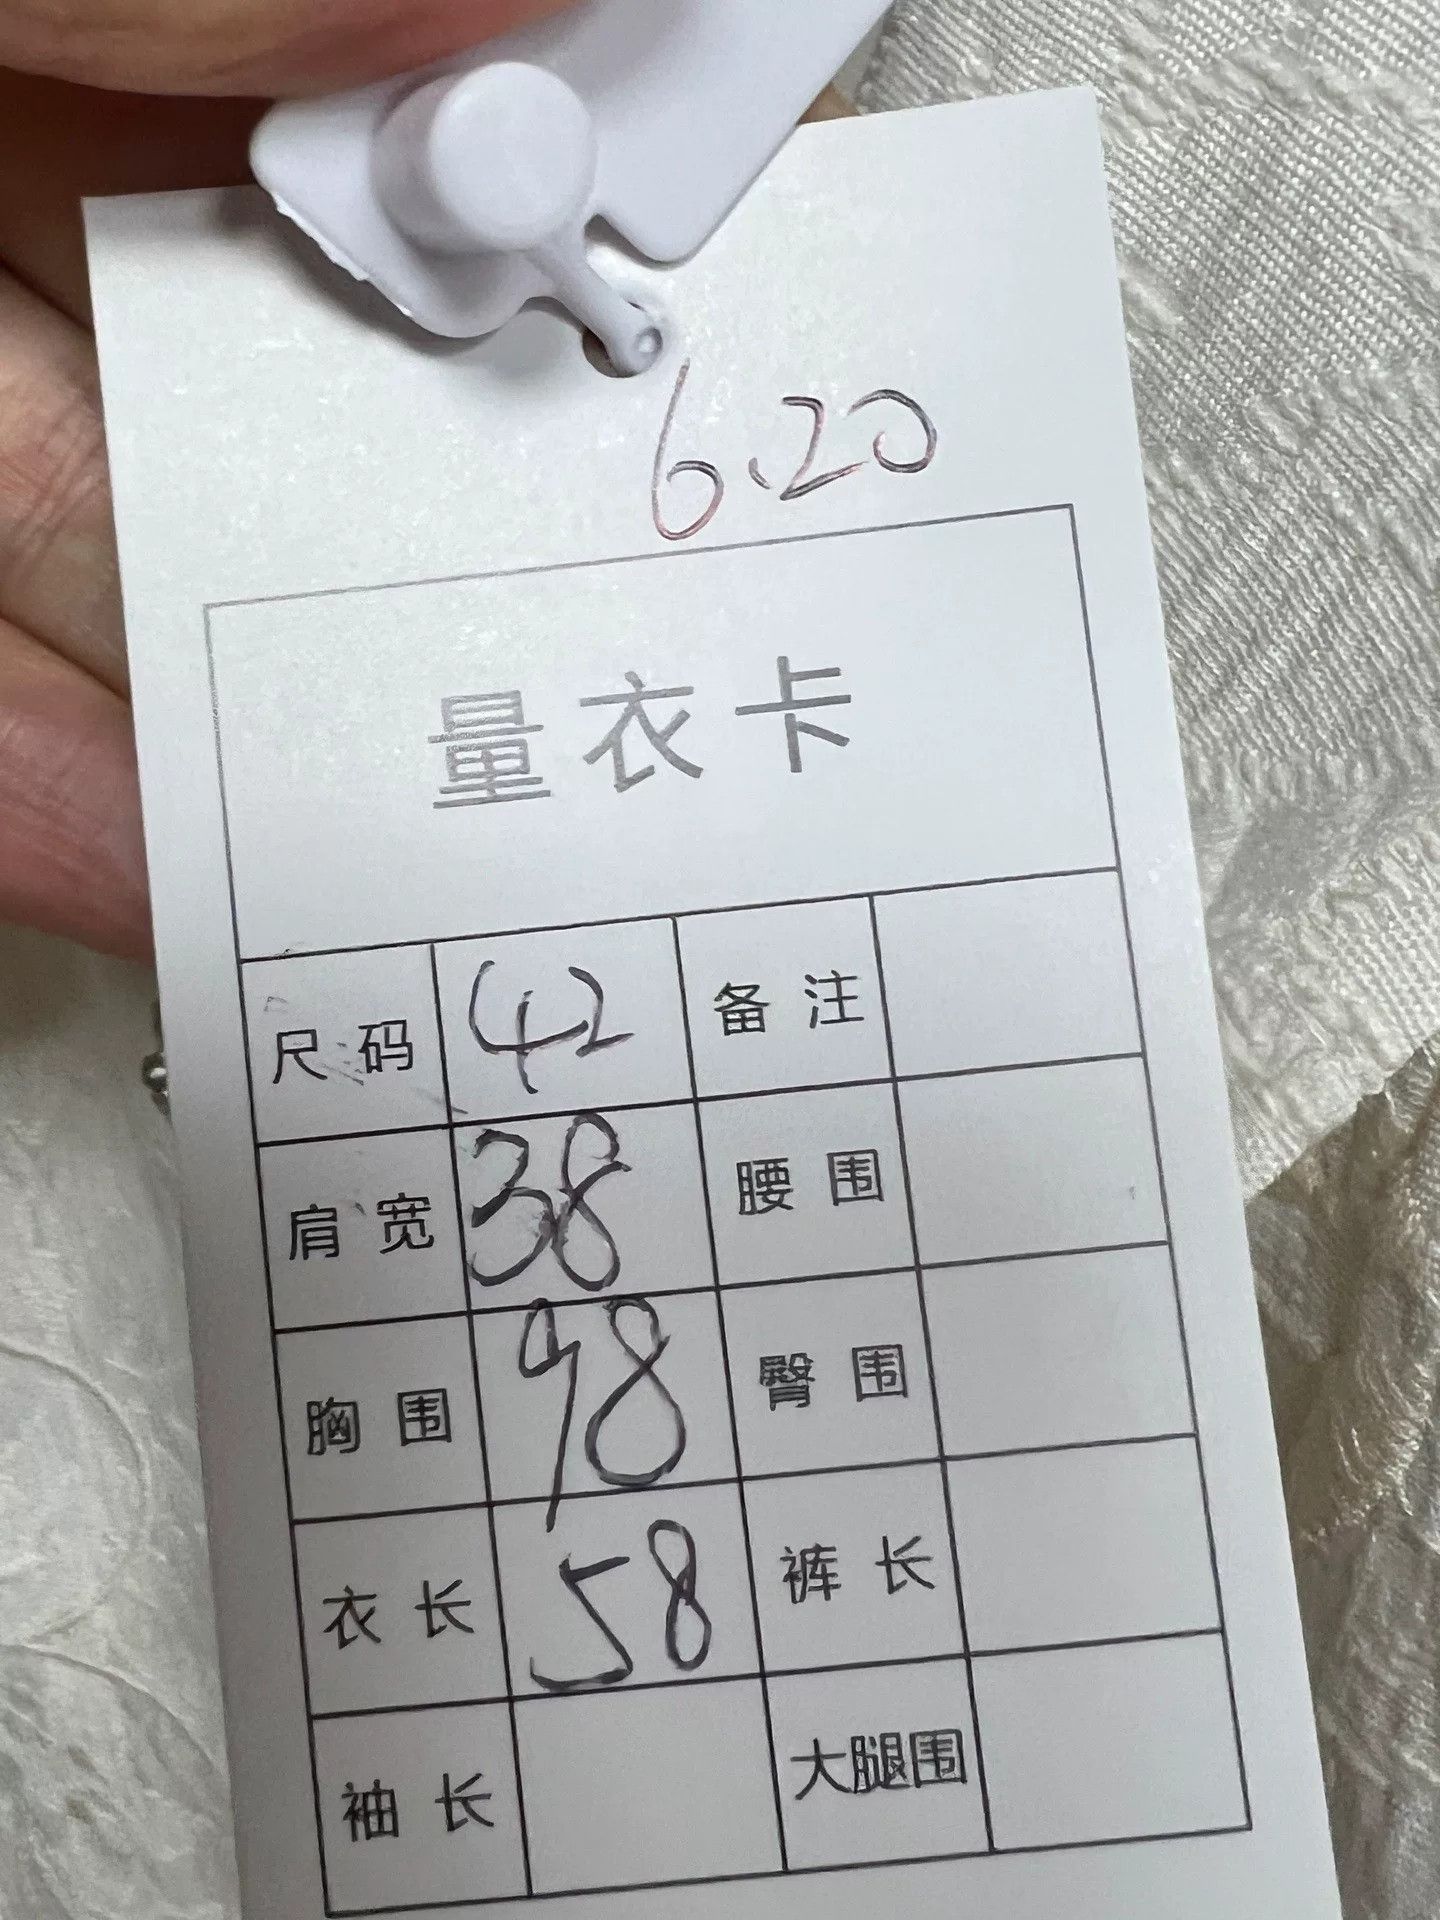 6.20
量衣卡
尺码 42 备注
肩宽 38 腰围
胸围 98 臀围
衣长 58 裤长
袖长 大腿围